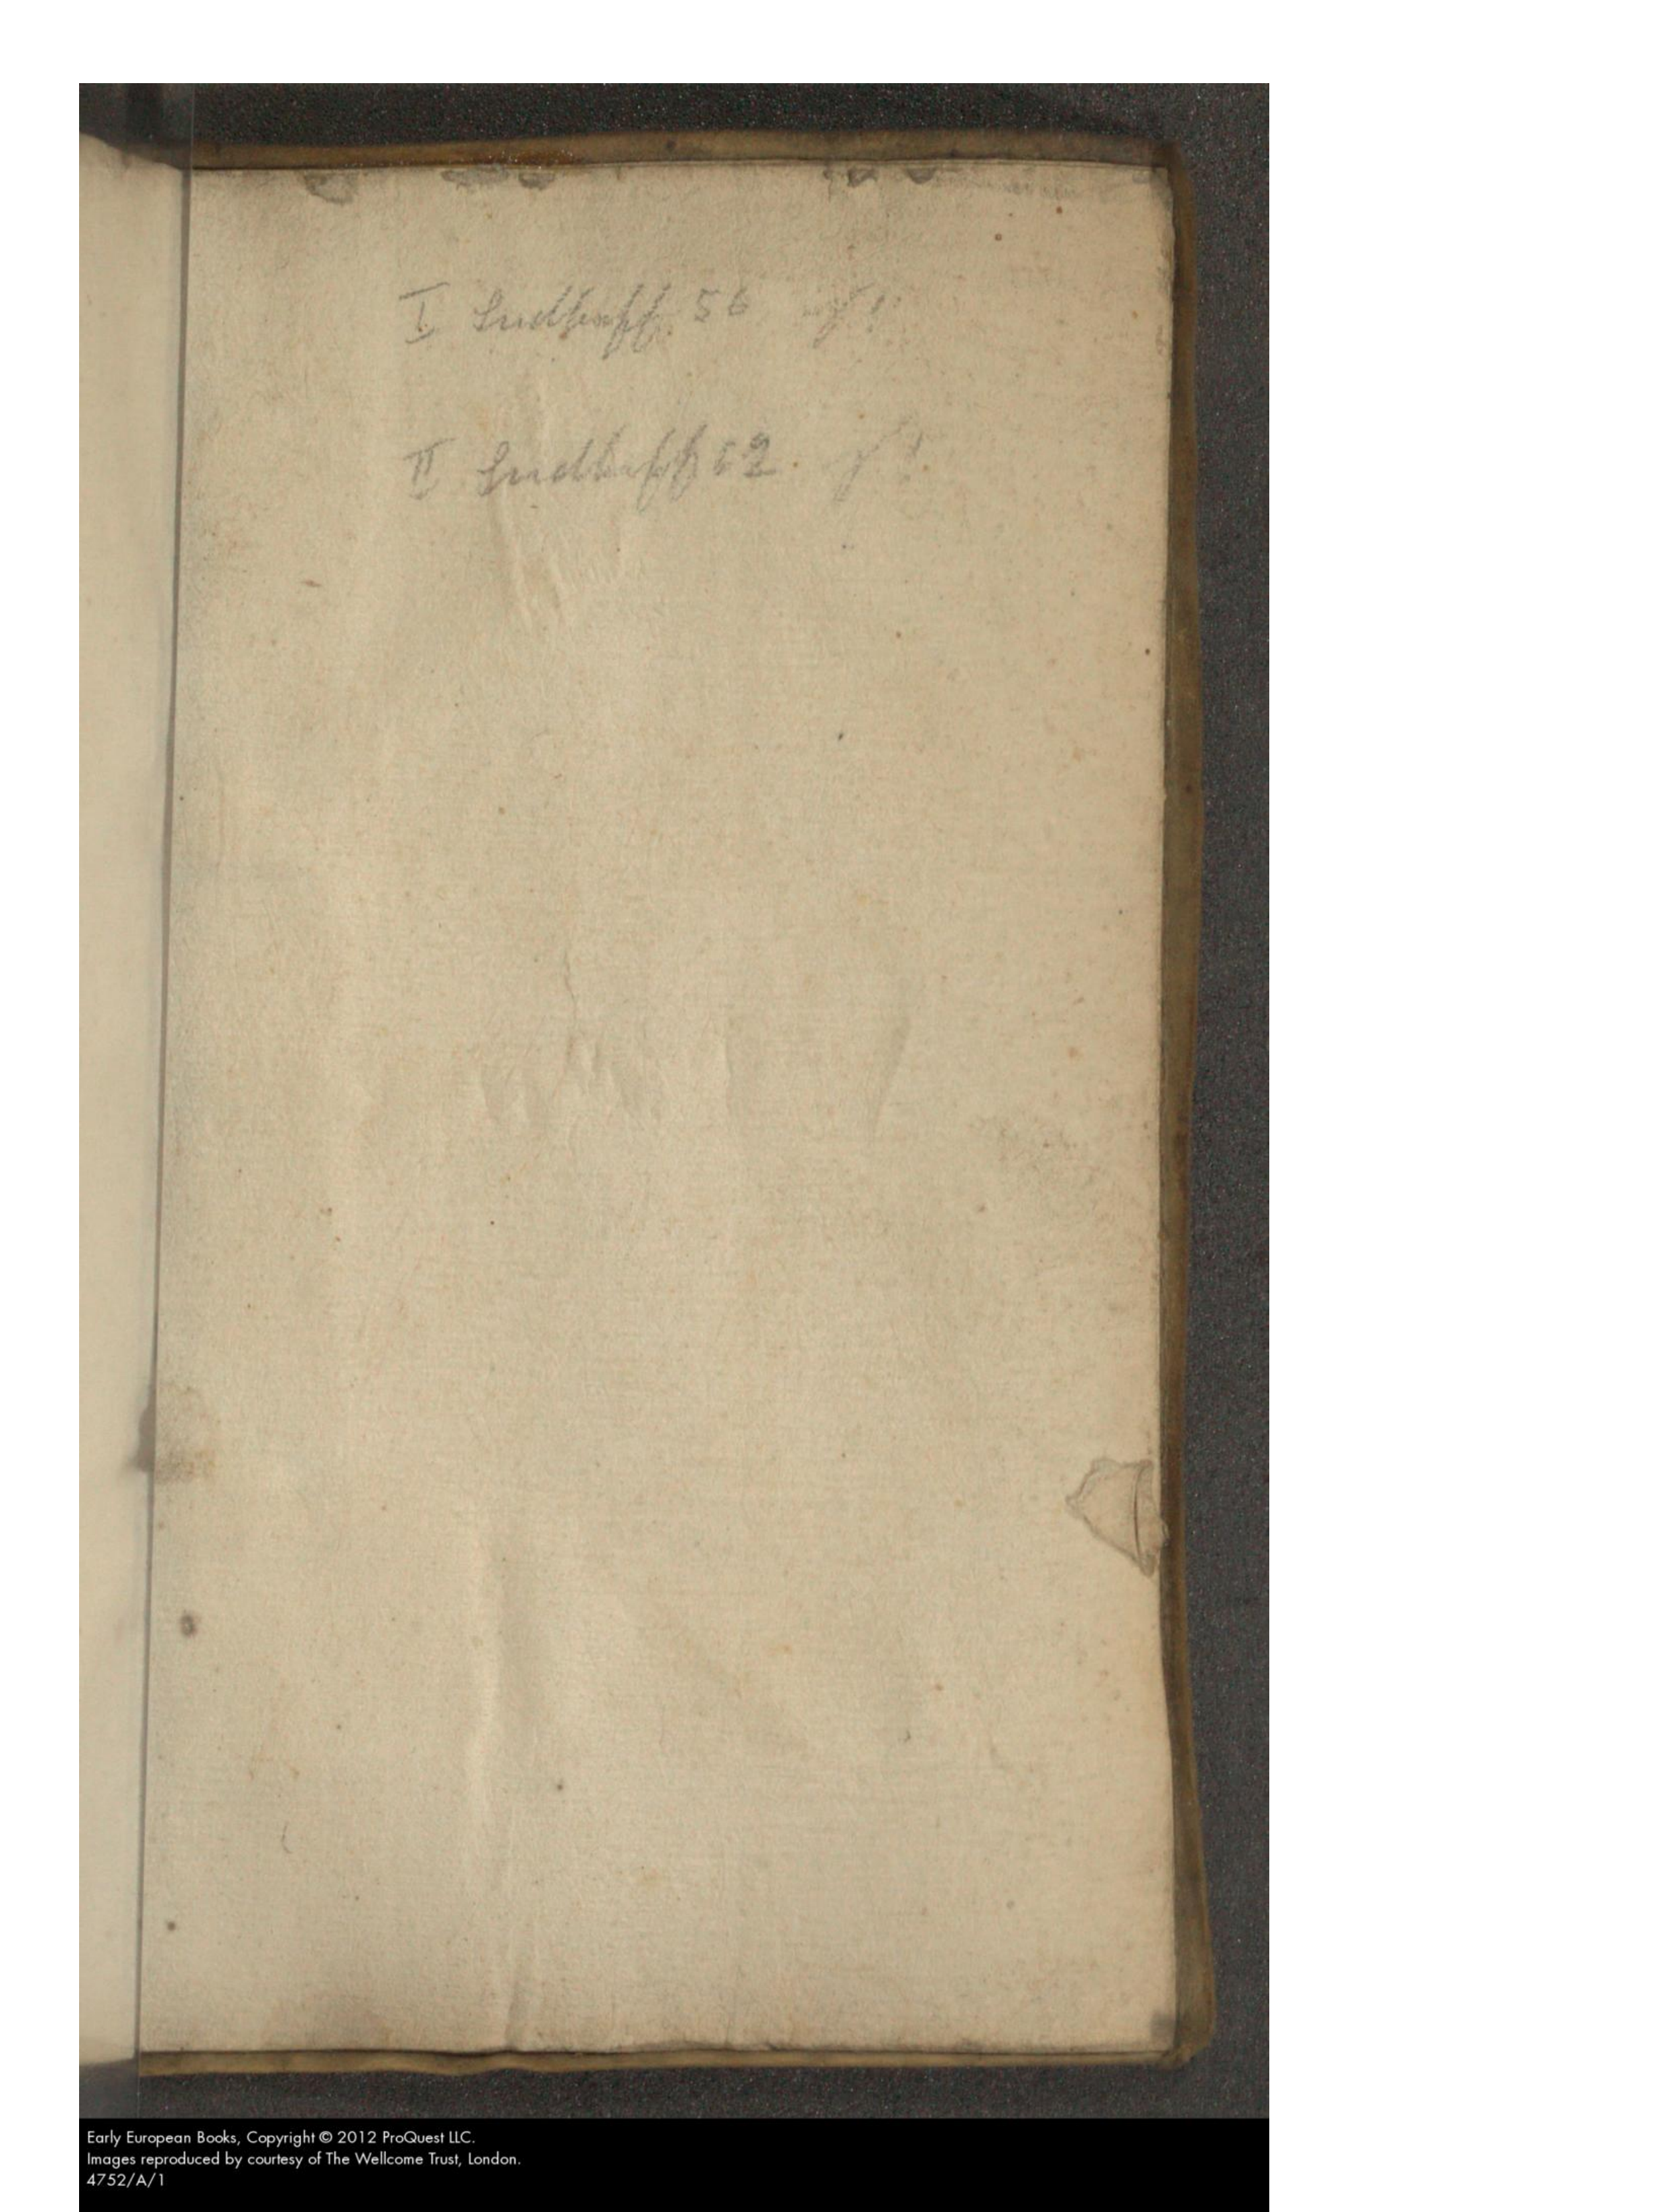 I Sudhoff 56
II Sudhoff 62.
Early European Books, Copyright © 2012 ProQuest LLC.
Images reproduced by courtesy of The Wellcome Trust, London.
4752/A/1